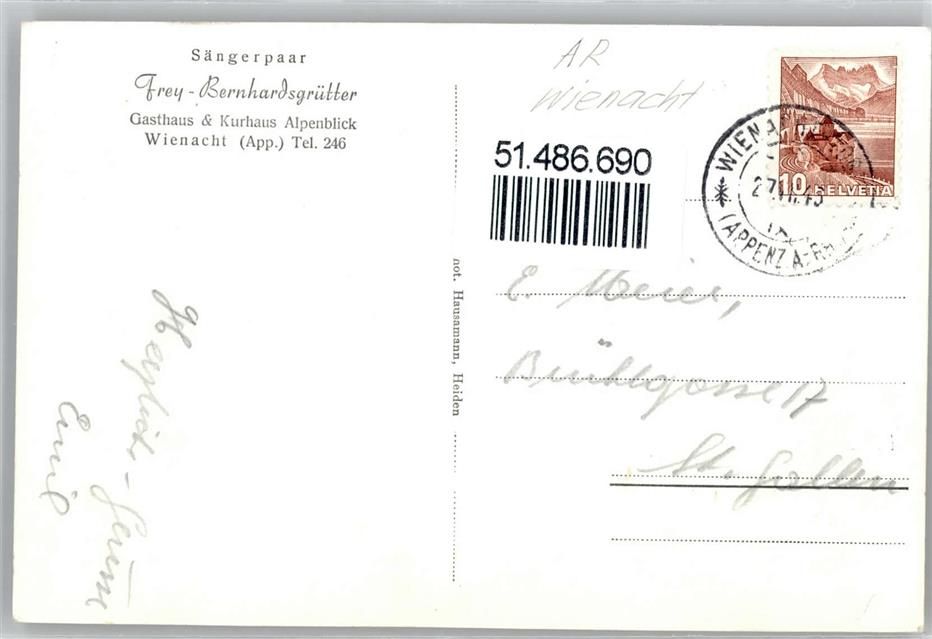 Sängerpaar
Frey - Bernhardsgrütter
Gasthaus & Kurhaus Alpenblick
Wienacht (App.) Tel. 246
AR
Wienacht
51.486.690
10 HELVETIA
WIENA
(APPENZ A.-RH.
phot. Hausamann, Heiden
E. Meier,
Brühlgasse 17
St. Gallen
Emil